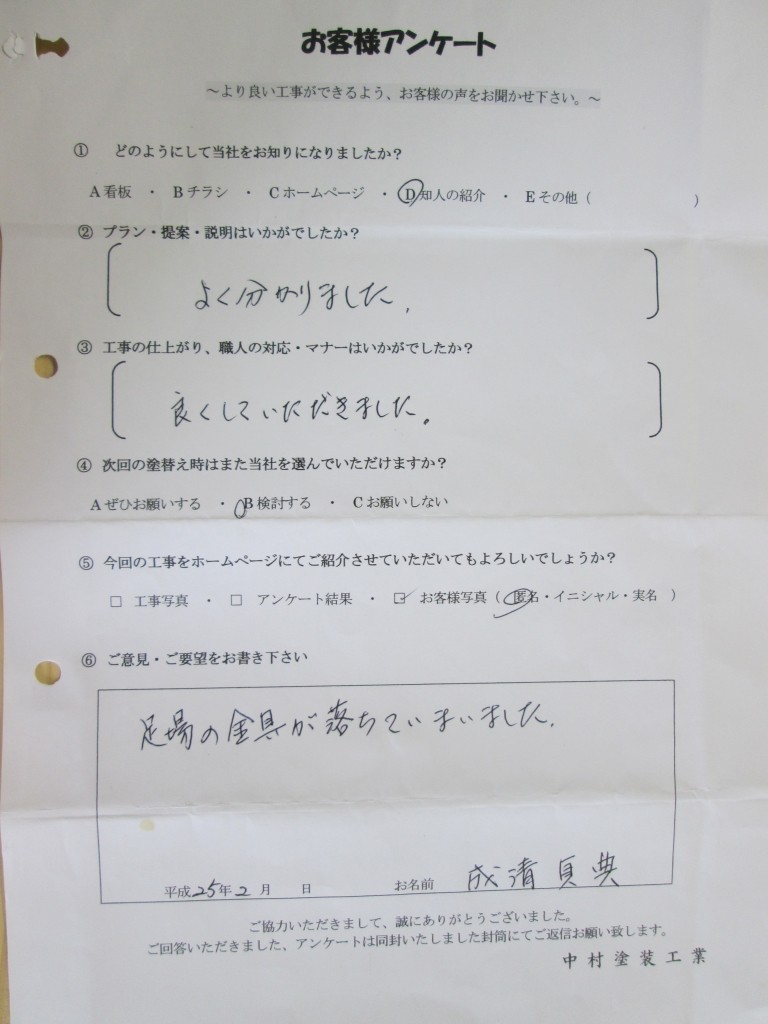 お客様アンケート
～より良い工事ができるよう、お客様の声をお聞かせ下さい。～
① どのようにして当社をお知りになりましたか？
A 看板 ・ B チラシ ・ C ホームページ ・ D 知人の紹介 ・ E その他（ ）
② プラン・提案・説明はいかがでしたか？
よく分かりました。
③ 工事の仕上がり、職人の対応・マナーはいかがでしたか？
良くしていただきました。
④ 次回の塗替え時はまた当社を選んでいただけますか？
A ぜひお願いする ・ B 検討する ・ C お願いしない
⑤ 今回の工事をホームページにてご紹介させていただいてもよろしいでしょうか？
□ 工事写真 ・ □ アンケート結果 ・ ☑ お客様写真（ 匿名・イニシャル・実名 ）
⑥ ご意見・ご要望をお書き下さい
足場の金具が落ちていまいました。
平成25年2月 日 お名前 成清 貞典
ご協力いただきまして、誠にありがとうございました。
ご回答いただきました、アンケートは同封いたしました封筒にてご返信お願い致します。
中村塗装工業